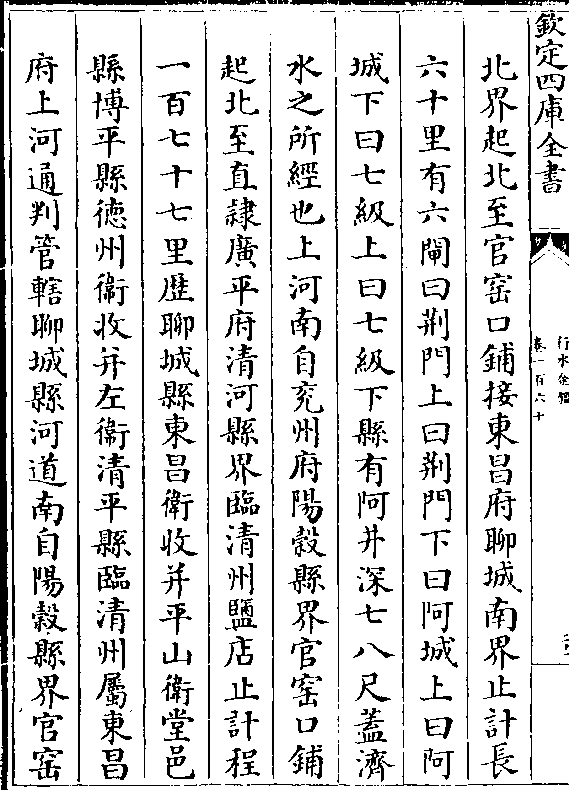 欽定四庫全書
行水金鑑
卷一百六十
北界起北至官窑口鋪接東昌府聊城南界止計長
六十里有六閘曰荆門上曰荆門下曰阿城上曰阿
城下曰七級上曰七級下縣有阿井深七八尺蓋濟
水之所經也上河南自兖州府陽穀縣界官窑口鋪
起北至直隷廣平府清河縣界臨清州鹽店止計程
一百七十七里歴聊城縣東昌衛收并平山衛堂邑
縣博平縣徳州衛收并左衛清平縣臨清州屬東昌
府上河通判管轄聊城縣河道南自陽穀縣界官窑